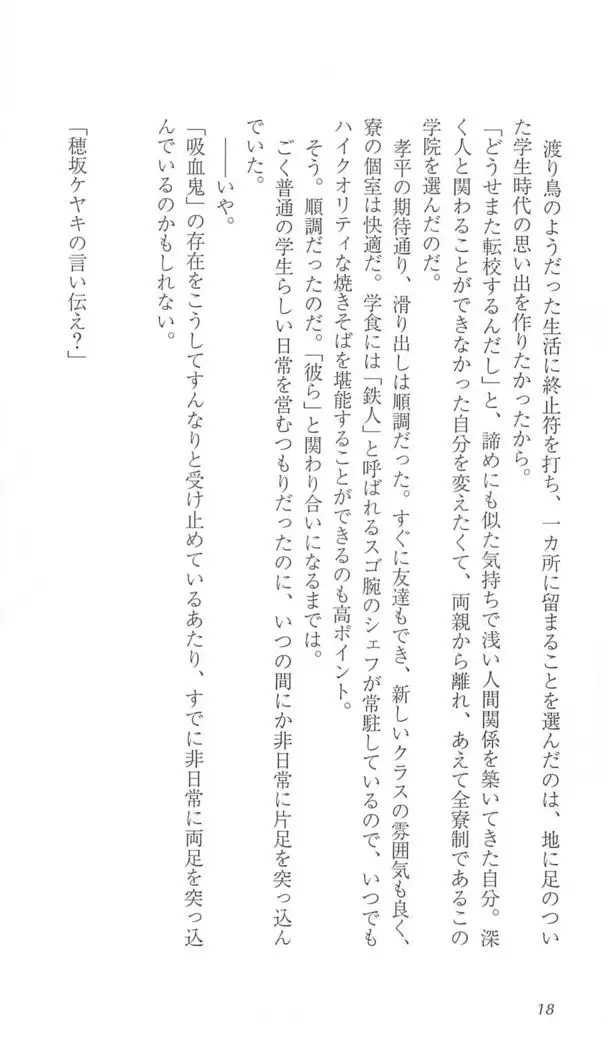 渡り鳥のようだった生活に終止符を打ち、一カ所に留まることを選んだのは、地に足のつい
た学生時代の思い出を作りたかったから。
「どうせまた転校するんだし」と、諦めにも似た気持ちで浅い人間関係を築いてきた自分。深
く人と関わることができなかった自分を変えたくて、両親から離れ、あえて全寮制であるこの
学院を選んだのだ。
孝平の期待通り、滑り出しは順調だった。すぐに友達もでき、新しいクラスの雰囲気も良く、
寮の個室は快適だ。学食には「鉄人」と呼ばれるスゴ腕のシェフが常駐しているので、いつでも
ハイクオリティな焼きそばを堪能することができるのも高ポイント。
そう。順調だったのだ。「彼ら」と関わり合いになるまでは。
ごく普通の学生らしい日常を営むつもりだったのに、いつの間にか非日常に片足を突っ込ん
でいた。
――いや。
「吸血鬼」の存在をこうしてすんなりと受け止めているあたり、すでに非日常に両足を突っ込
んでいるのかもしれない。
「穂坂ケヤキの言い伝え?」
18